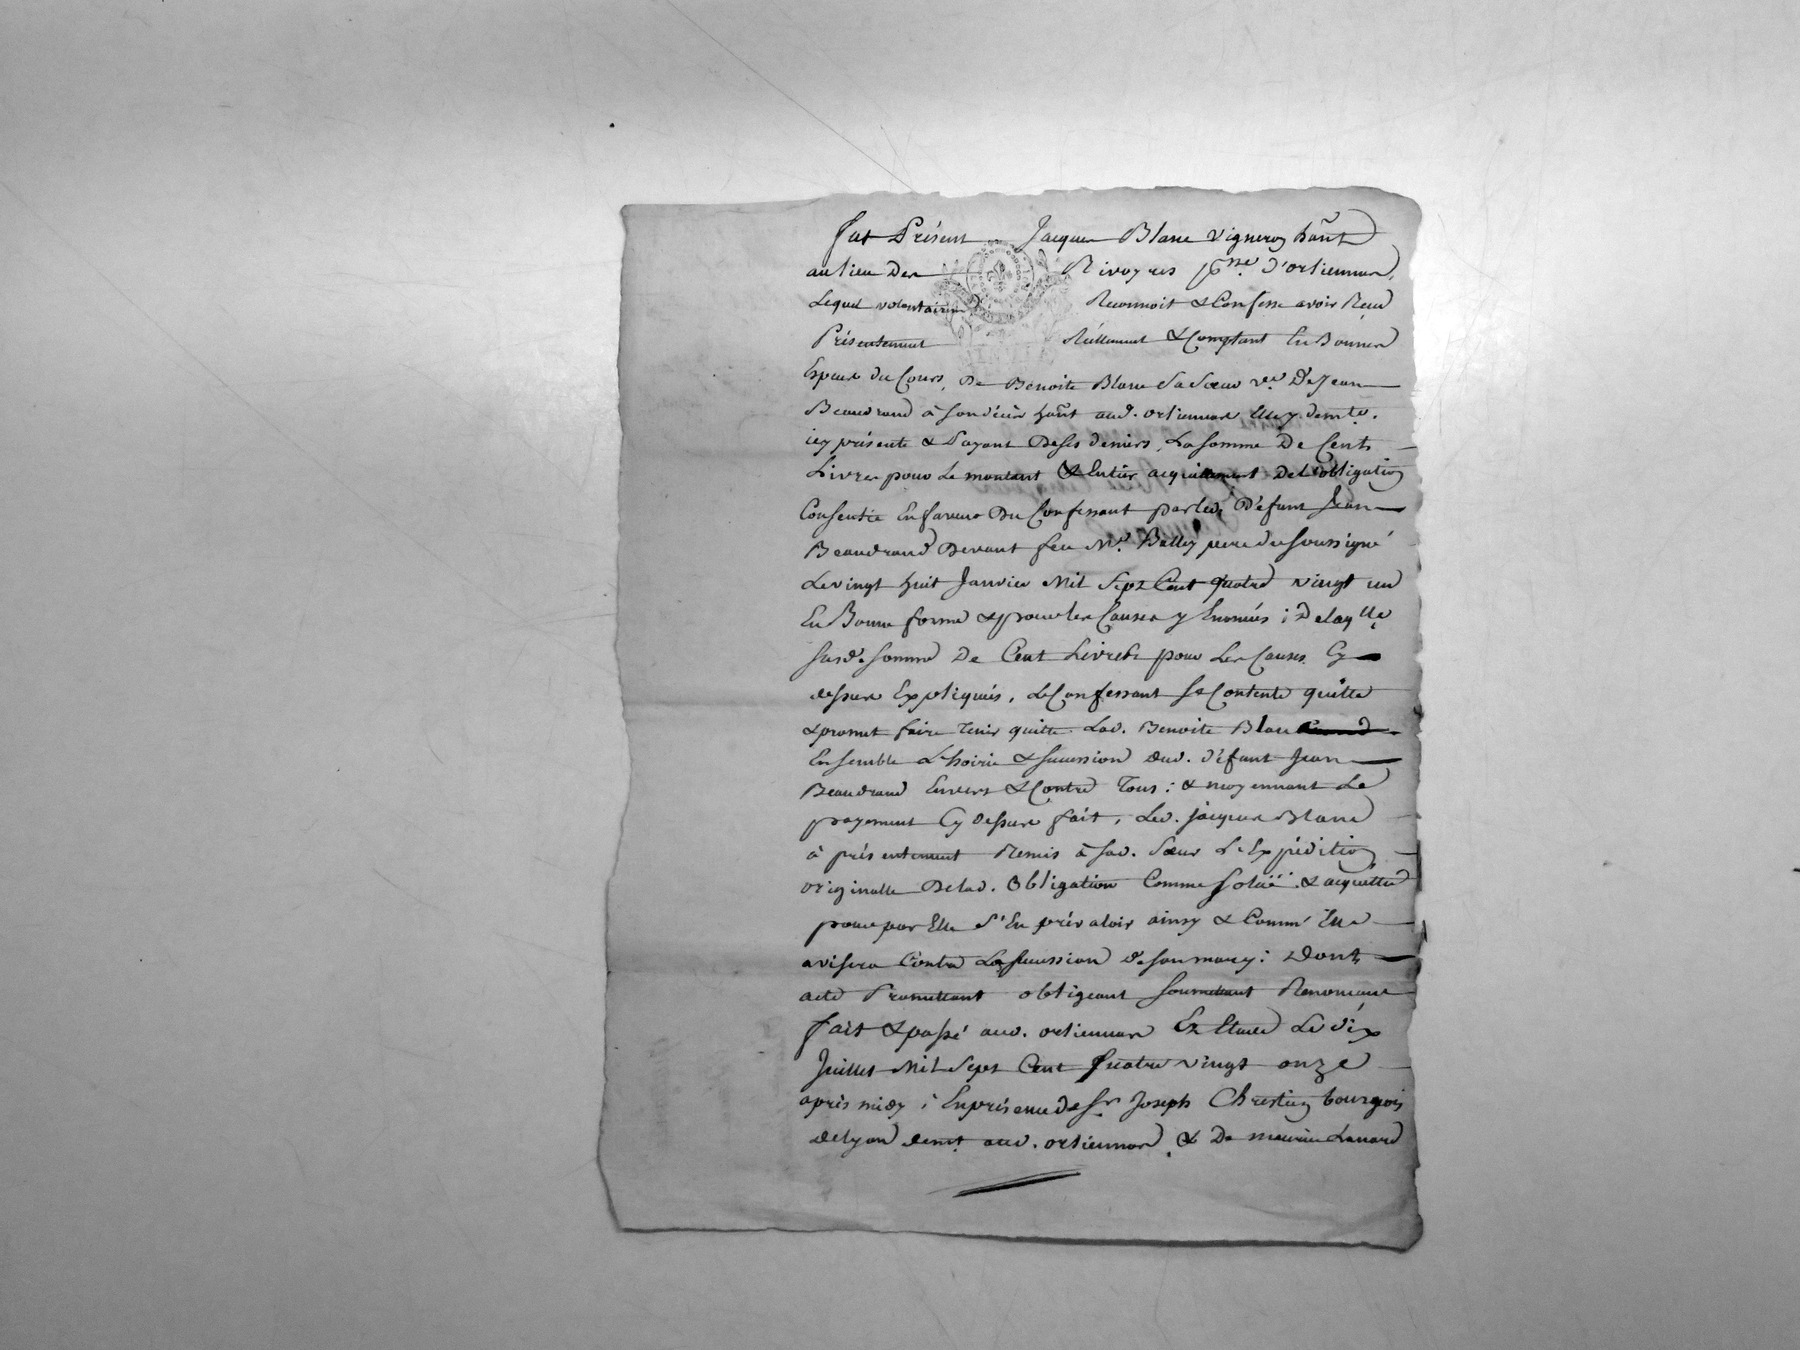 fut Présent Jacques Blanc vigneron hãnt
au lieu des Rivoyres psse. d'orliennas,
Lequel volontairemt Reconnoit & Confesse avoir Reçu
Présentement Réellement & Comptant En Bonnes
Espèces du Cours, De Benoite Blanc sa soeur ve. De Jean
Beaudrand à son décès hãnt aud. orliennas Elle y demte.
icy présente & Payant De ses deniers, La somme De Cents
Livres pour Le montant & Entier acquittement De L'obligation
Consentie En faveur Du Confessant par led. Défunt Jean
Beaudrand Devant feu Me. Balley pere du soussigné
Le vingt huit Janvier Mil Sept Cent quatre vingt un
En Bonne forme & pour les Causes y Enoncés ; De laqlle
susd. somme De Cent Livres pour Les Causes Cy
dessus Expliqués, Le Confessant se Contente quitte
& promet faire tenir quitte Lad. Benoite Blanc
Ensemble L'hoirie & sucession dud. défunt Jean
Beaudrand Envers & Contre Tous : & moyennant Le
payement Cy Dessus fait, Led. jacques Blanc
à présentement Remis à sad. Soeur L'Expédition
originalle De lad. obligation Comme soluë & acquittée
pour par Elle s'En prévaloir ainsy & Comm' Elle
avisera Contre La sucession De son mary : Dont
acte Promettant obligeant soumettant Renonçant
fait & passé aud. orliennas Ez Etude Le dix
Juillet Mil Sept Cent Quatre vingt onze
après midy ; En présence de Sr Joseph Chrestien bourgeois
de Lyon demt. aud. orliennas, & De maurice Lanard